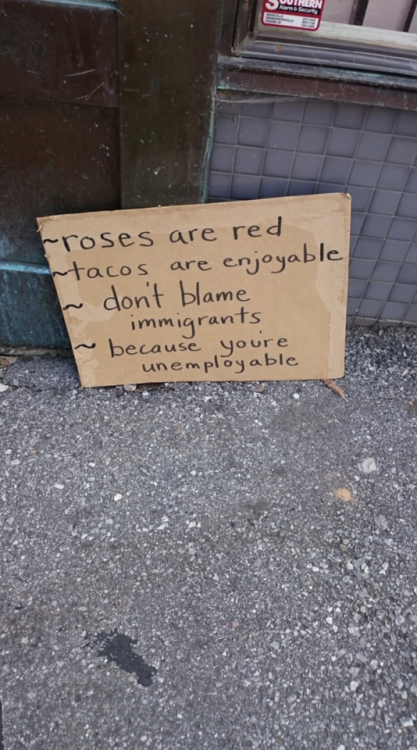 SOUTHERN
Alarm & Security
~roses are red
~tacos are enjoyable
~ don't blame
immigrants
~ because you're
unemployable